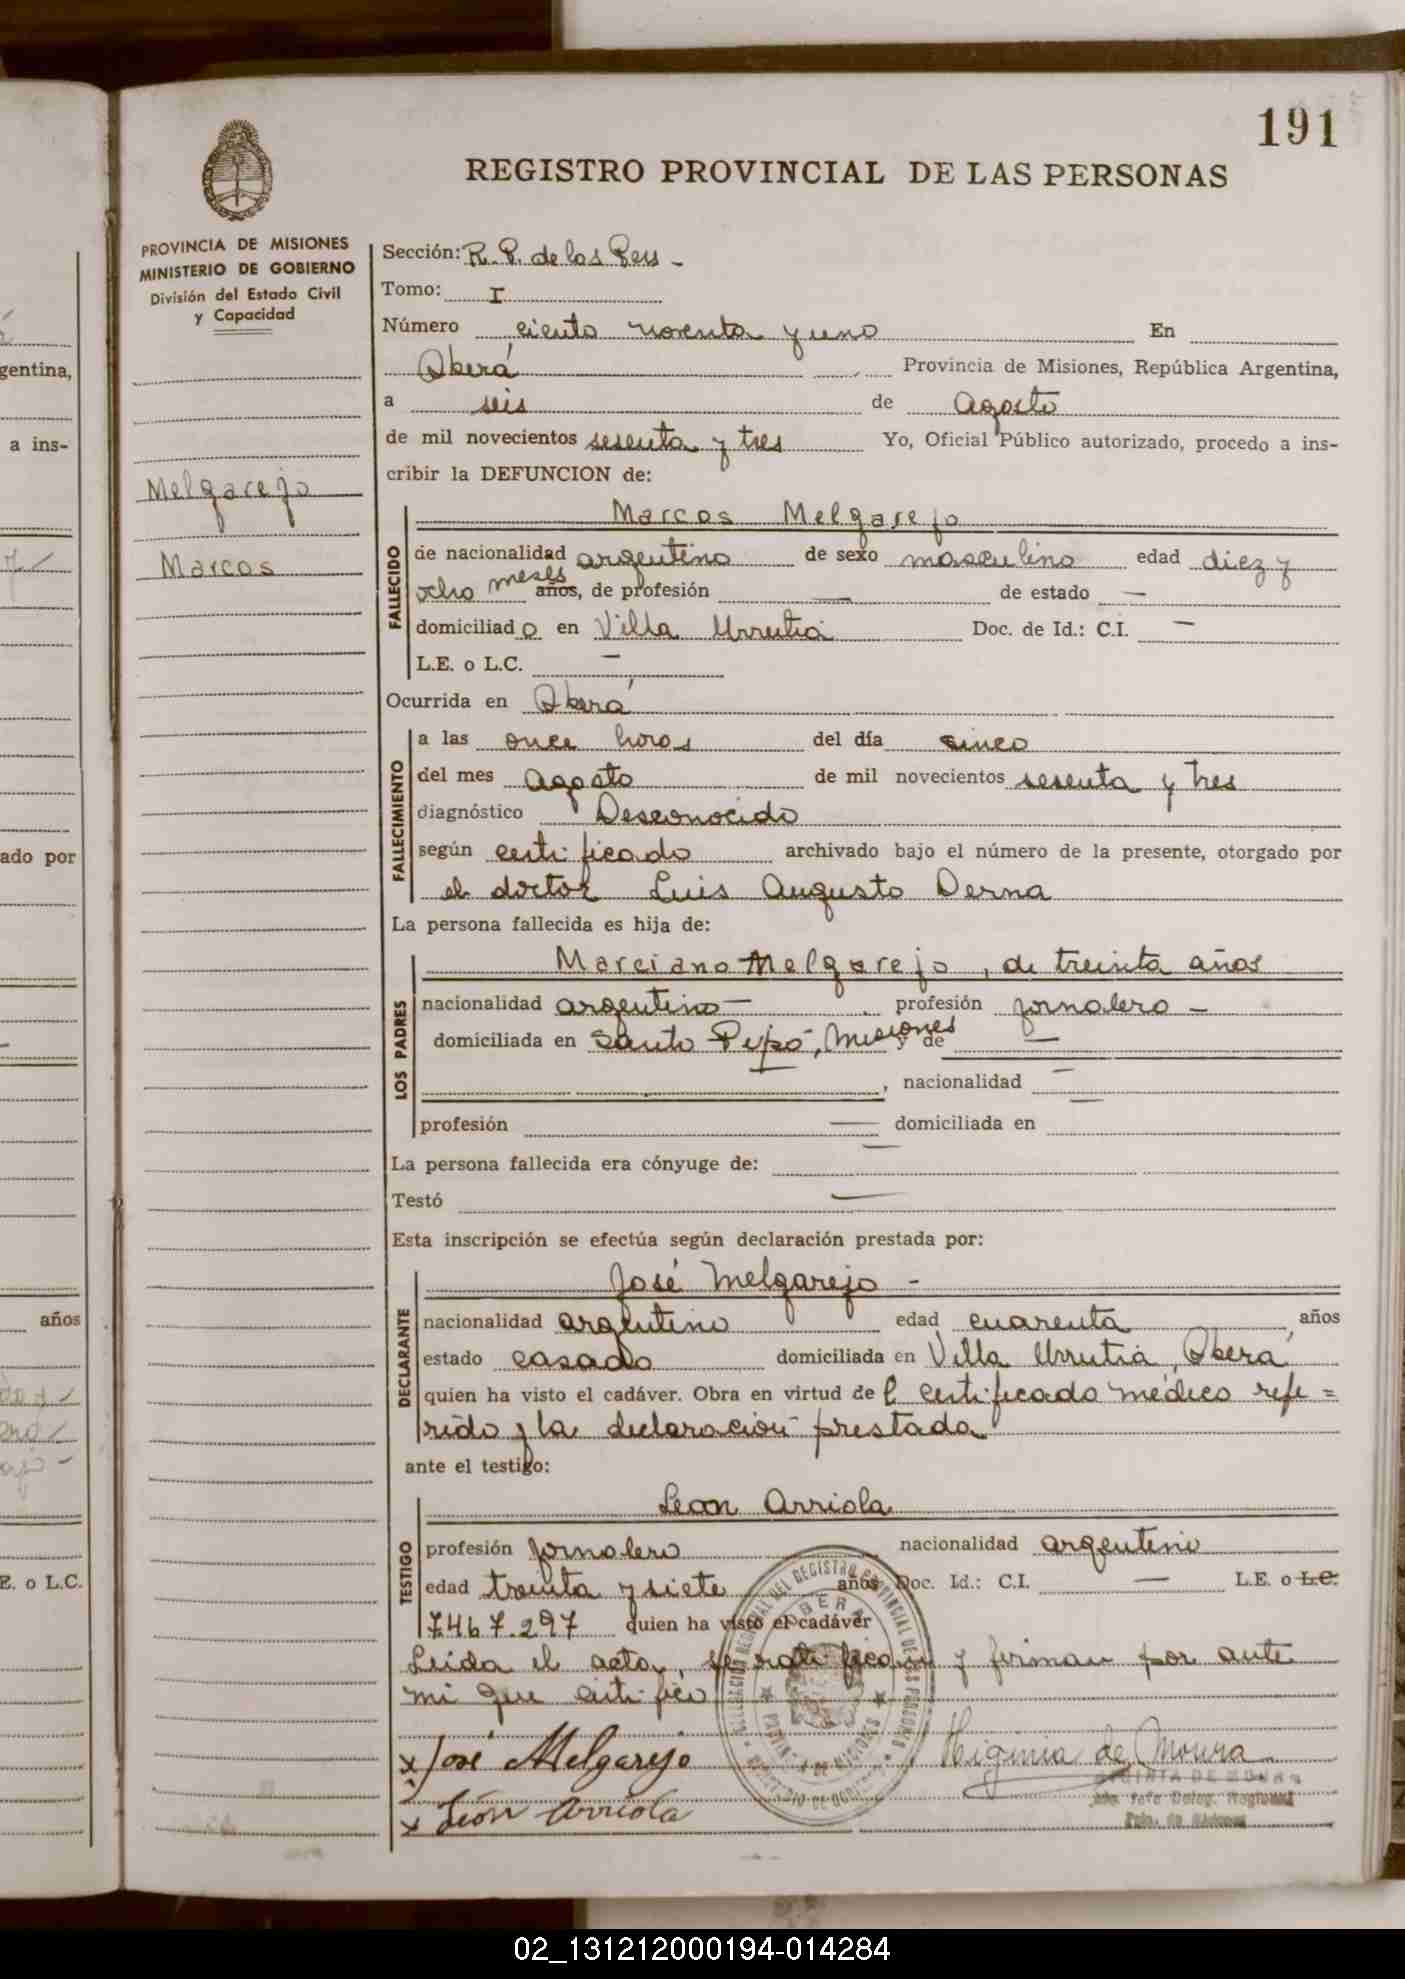 191
REGISTRO PROVINCIAL DE LAS PERSONAS
PROVINCIA DE MISIONES
MINISTERIO DE GOBIERNO
División del Estado Civil
y Capacidad
Melgarejo
Marcos
Sección: R. P. de las Pers -
Tomo: I
Número ciento noventa y uno En
Oberá Provincia de Misiones, República Argentina,
a seis de Agosto
de mil novecientos sesenta y tres Yo, Oficial Público autorizado, procedo a ins-
cribir la DEFUNCION de:
Marcos Melgarejo
FALLECIDO
de nacionalidad argentino de sexo masculino edad diez y
ocho meses años, de profesión — de estado —
domiciliado en Villa Urrutia Doc. de Id.: C.I. —
L.E. o L.C. —
Ocurrida en Oberá
FALLECIMIENTO
a las once horas del día cinco
del mes Agosto de mil novecientos sesenta y tres
diagnóstico Desconocido
según certificado archivado bajo el número de la presente, otorgado por
el doctor Luis Augusto Derna
La persona fallecida es hija de:
LOS PADRES
Marciano Melgarejo, de treinta años
nacionalidad argentino — profesión jornalero —
domiciliada en Santo Pipó, Misiones y de —
, nacionalidad —
profesión — domiciliada en —
La persona fallecida era cónyuge de: —
Testó —
Esta inscripción se efectúa según declaración prestada por:
DECLARANTE
José Melgarejo -
nacionalidad argentino edad cuarenta años
estado casado domiciliada en Villa Urrutia, Oberá
quien ha visto el cadáver. Obra en virtud de l certificado médico refe =
rido y la declaración prestada
ante el testigo:
TESTIGO
Leon Arriola
profesión jornalero nacionalidad argentino
edad treinta y siete años Doc. Id.: C.I. — L.E. o L.C.
7.467.297 quien ha visto el cadáver
Leída el acta, se ratifican y firman por ante
mi que certifico
x José Melgarejo
x León Arriola
Higinia de Moura
HIGINIA DE MOURA
DELEGACION REGIONAL DEL REGISTRO PROVINCIAL DE LAS PERSONAS
OBERA
PROVINCIA DE MISIONES
MINISTERIO DE GOBIERNO
gentina,
a ins-
ado por
años
E. o L.C.
02_131212000194-014284